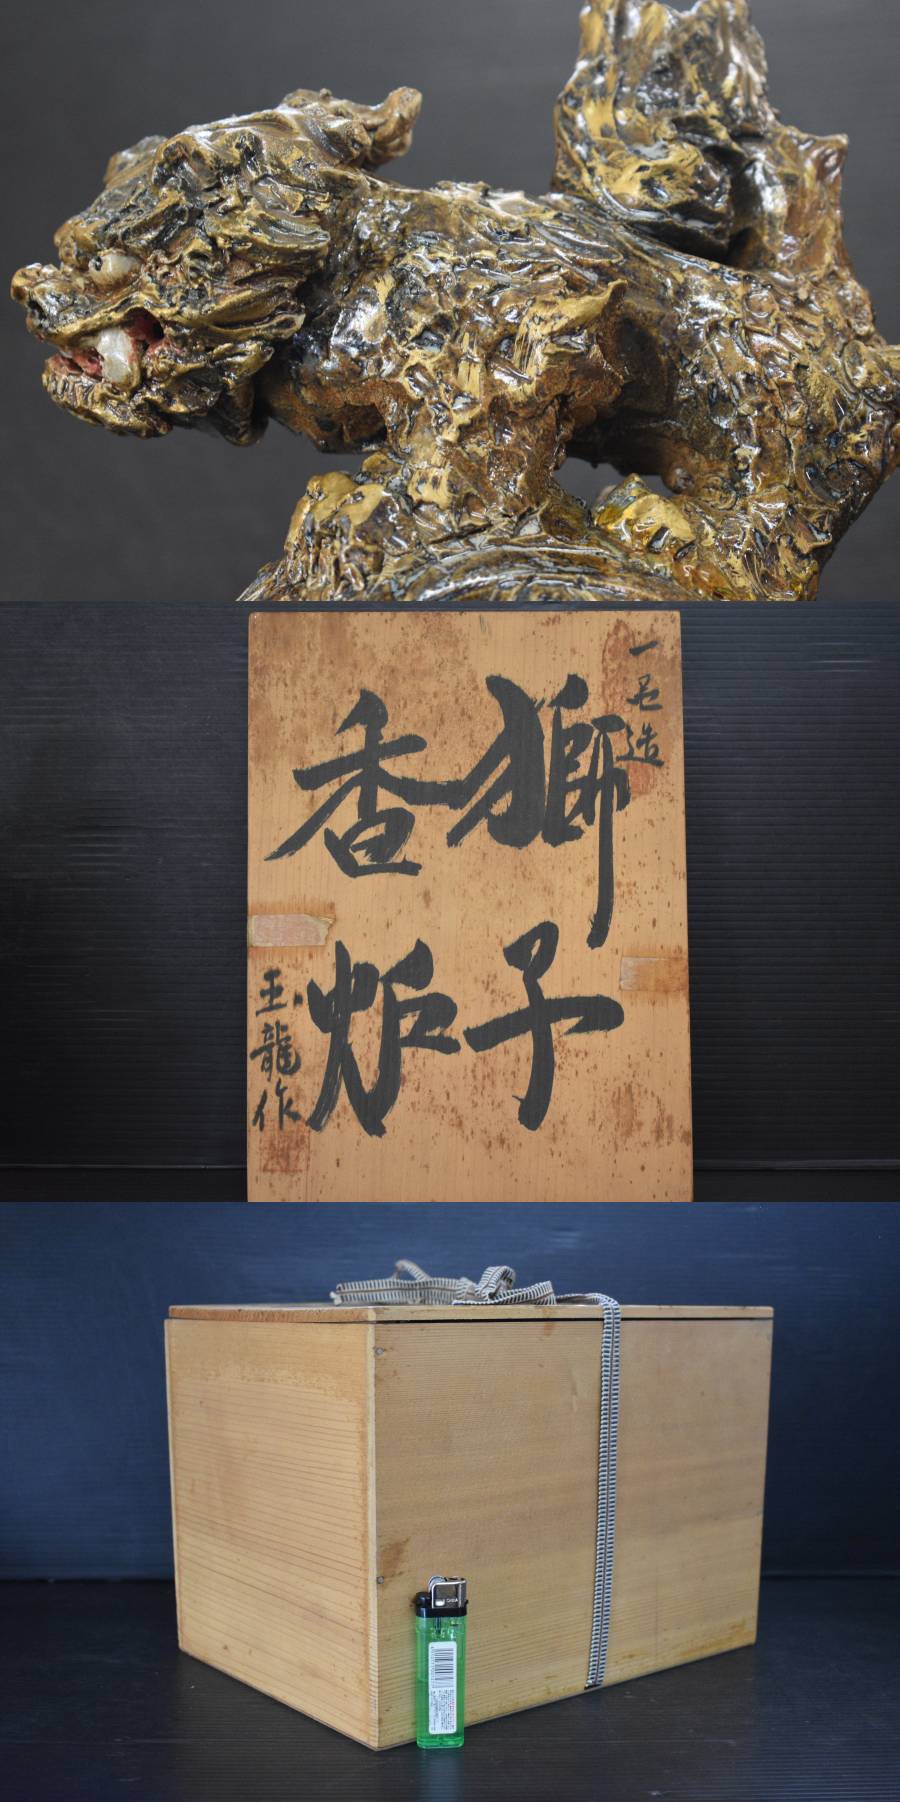 一口造
獅子
香炉
玉龍作